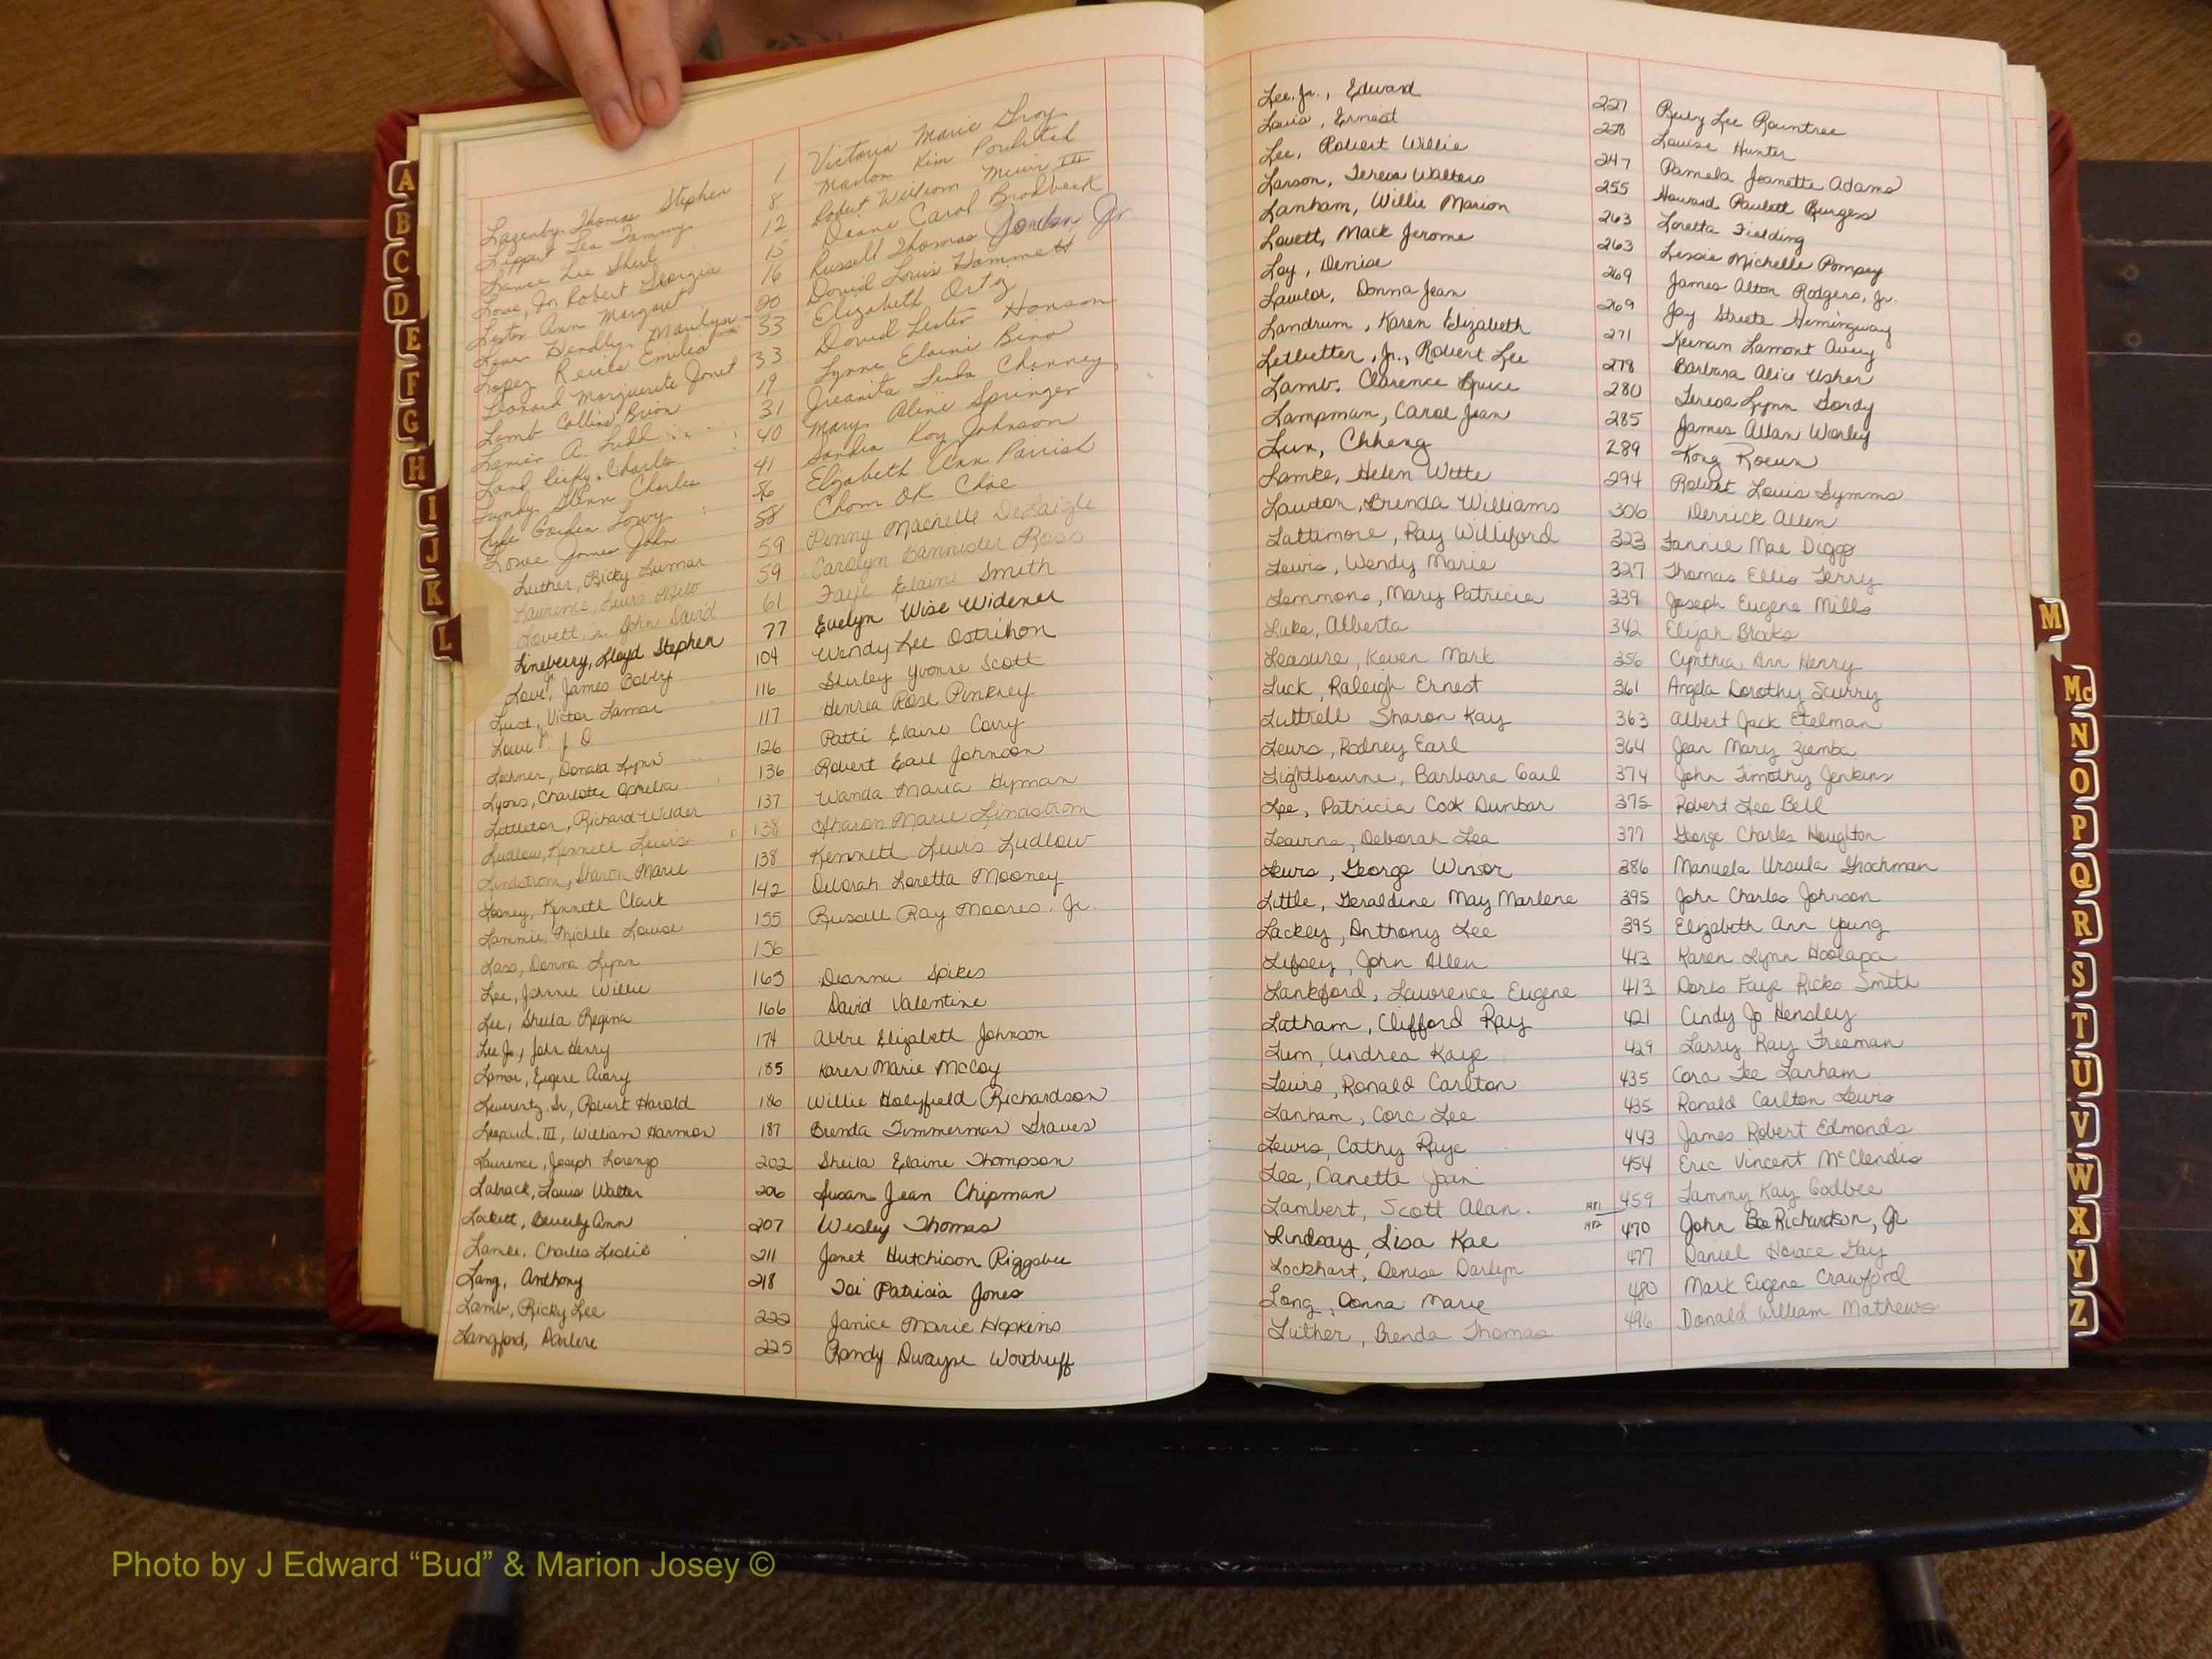 Lazenby, Thomas Stephen 1 Victoria Marie Troy
Lippert Lea Tammy 8 Marlon Kim Poulitch
Lance Lee Sheil 12 Robert William Muir III
Lowe, Jr. Robert Georgia 15 Deane Carol Brodbeck
Lester Ann Margaret 16 Russell Thomas Jordan Jr
Lever Hendley Marilyn 20 David Louis Hammett
Lopez Emilio 33 Elizabeth Ortz
Leonard Marguerite Janet 33 David Lester Hanson
Lamb Collins Brion 19 Lynne Elaine Bino
Lanier A. 31 Juanita Chinney
Land Ricky Charles 40 Mary Aline Springer
Lundy Glenn Charles 41 Sandra Kay Johnson
Lyle Gorden Lowry 56 Elizabeth Ann Parrish
Lowe James John 58 Chom OK Choe
Luther, Ricky Lumar 59 Penny Machelle DeLaigle
Laurence, 59 Carolyn Bannister Ross
Lovett, Jr. John David 61 Faye Elaine Smith
Lineberry, Lloyd Stephen 77 Evelyn Wise Widener
Love, Jr. James Bobby 104 Wendy Lee Ostrihon
Lust, Victor Lamar 116 Shirley Yvonne Scott
Lowe Jr. J D 117 Henrea Rose Pinkney
Lechner, Donald Lynn 126 Patti Elaine Corry
Lyons, Charlotte Ophelia 136 Robert Earl Johnson
Littleton, Richard Wilder 137 Wanda Maria Hyman
Ludlow, Kenneth Lewis 138 Sharon Marie Lindstrom
Lindstrom, Sharon Marie 138 Kenneth Lewis Ludlow
Looney, Kenneth Clark 142 Deborah Loretta Mooney
Lammie, Michele Louise 155 Russell Ray Moores, Jr.
Lass, Donna Lynn 156
Lee, Johnnie Willie 165 Deanna Spikes
Lee, Sheila Regina 166 David Valentine
Lee Jr., John Henry 174 Abbie Elizabeth Johnson
Lamar, Eugene Avary 185 Karen Marie McCoy
Leverentz, Sr, Robert Harold 186 Willie Holyfield Richardson
Leopard III, William Harmon 187 Brenda Timmerman Graves
Laurence, Joseph Lorenzo 202 Sheila Elaine Thompson
Laback, Louis Walter 206 Susan Jean Chipman
Lockett, Beverly Ann 207 Wesley Thomas
Lamke, Charles Leslie 211 Janet Hutchison Riggsbee
Lang, Anthony 218 Toi Patricia Jones
Lamb, Ricky Lee 222 Janice Marie Hopkins
Langford, Darlene 225 Randy Dwayne Woodruff
Lee, Jr., Edward 227 Ruby Lee Rountree
Louis, Ernest 228 Louise Hunter
Lee, Robert Willie 247 Pamela Jeanette Adams
Larson, Teresa Walters 255 Howard Paulett Burgess
Lanham, Willie Marion 263 Loretta Fielding
Lovett, Mack Jerome 263 Lessie Michelle Pompey
Loy, Denise 269 James Alton Rodgers, Jr.
Lawlor, Donna Jean 269 Jay Streete Hemingway
Landrum, Karen Elizabeth 271 Keenan Lamont Avery
Ledbetter, Jr., Robert Lee 278 Barbara Alice Usher
Lamb, Clarence Bruce 280 Teresa Lynn Gordy
Lampman, Carol Jean 285 James Allan Worley
Lun, Chheng 289 Kong Roeun
Lamke, Helen Witte 294 Robert Louis Symms
Lawton, Brenda Williams 306 Derrick Allen
Lattimore, Ray Williford 323 Fannie Mae Diggs
Lewis, Wendy Marie 327 Thomas Ellis Terry
Lemmons, Mary Patricia 339 Joseph Eugene Mills
Luke, Alberta 342 Elijah Brooks
Leasure, Keven Mark 356 Cynthia Ann Henry
Luck, Raleigh Ernest 361 Angela Dorothy Scurry
Luttrell Sharon Kay 363 Albert Jack Etelman
Lewis, Rodney Earl 364 Jean Mary Ziemba
Lightbourne, Barbara Gail 374 John Timothy Jenkins
Lee, Patricia Cook Dunbar 375 Robert Lee Bell
Leairns, Deborah Lea 377 George Charles Houghton
Lewis, George Winsor 386 Manuela Ursula Grochman
Little, Geraldine May Marlene 395 John Charles Johnson
Lackey, Anthony Lee 395 Elizabeth Ann Young
Lipsey, John Allen 413 Karen Lynn Hoolapa
Lankford, Lawrence Eugene 413 Doris Faye Ricks Smith
Latham, Clifford Ray 421 Cindy Jo Hensley
Lum, Andrea Kaye 429 Larry Ray Freeman
Lewis, Ronald Carlton 435 Cora Lee Lanham
Lanham, Cora Lee 435 Ronald Carlton Lewis
Lewis, Cathy Raye 443 James Robert Edmonds
Lee, Danette Joan 454 Eric Vincent McClendis
Lambert, Scott Alan. 1981 459 Tammy Kay Godbee
Lindsay, Lisa Kae 1982 470 John Bee Richardson, Jr
Lockhart, Denise Darlyn 477 Daniel Horace Gay
Long, Donna Marie 480 Mark Eugene Crawford
Luther, Brenda Thomas 496 Donald William Mathews
A
B
C
D
E
F
G
H
I
J
K
L
M
Mc
N
O
P
Q
R
S
T
U
V
W
X
Y
Z
Photo by J Edward “Bud” & Marion Josey ©